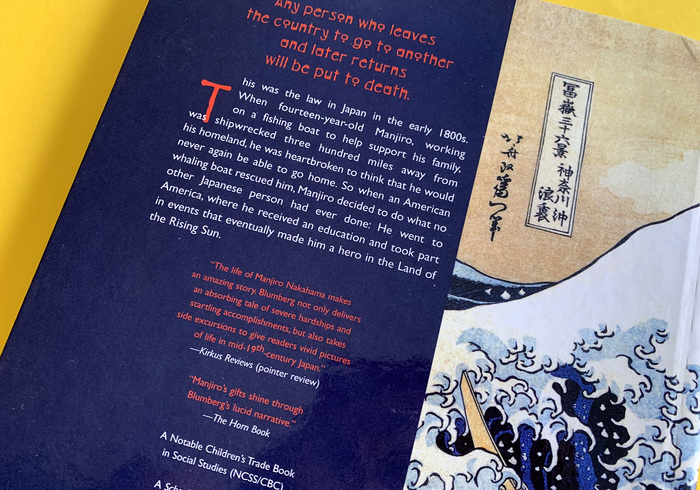 Any person who leaves
the country to go to another
and later returns
will be put to death.
This was the law in Japan in the early 1800s.
When fourteen-year-old Manjiro, working
on a fishing boat to help support his family,
was shipwrecked three hundred miles away from
his homeland, he was heartbroken to think that he would
never again be able to go home. So when an American
whaling boat rescued him, Manjiro decided to do what no
other Japanese person had ever done: He went to
America, where he received an education and took part
in events that eventually made him a hero in the Land of
the Rising Sun.
"The life of Manjiro Nakahama makes
an amazing story. Blumberg not only delivers
an absorbing tale of severe hardships and
startling accomplishments, but also takes
side excursions to give readers vivid pictures
of life in mid-19th-century Japan."
—Kirkus Reviews (pointer review)
"Manjiro's gifts shine through
Blumberg's lucid narrative."
—The Horn Book
A Notable Children's Trade Book
in Social Studies (NCSS/CBC)
A
冨嶽三十六景 神奈川沖
浪裏